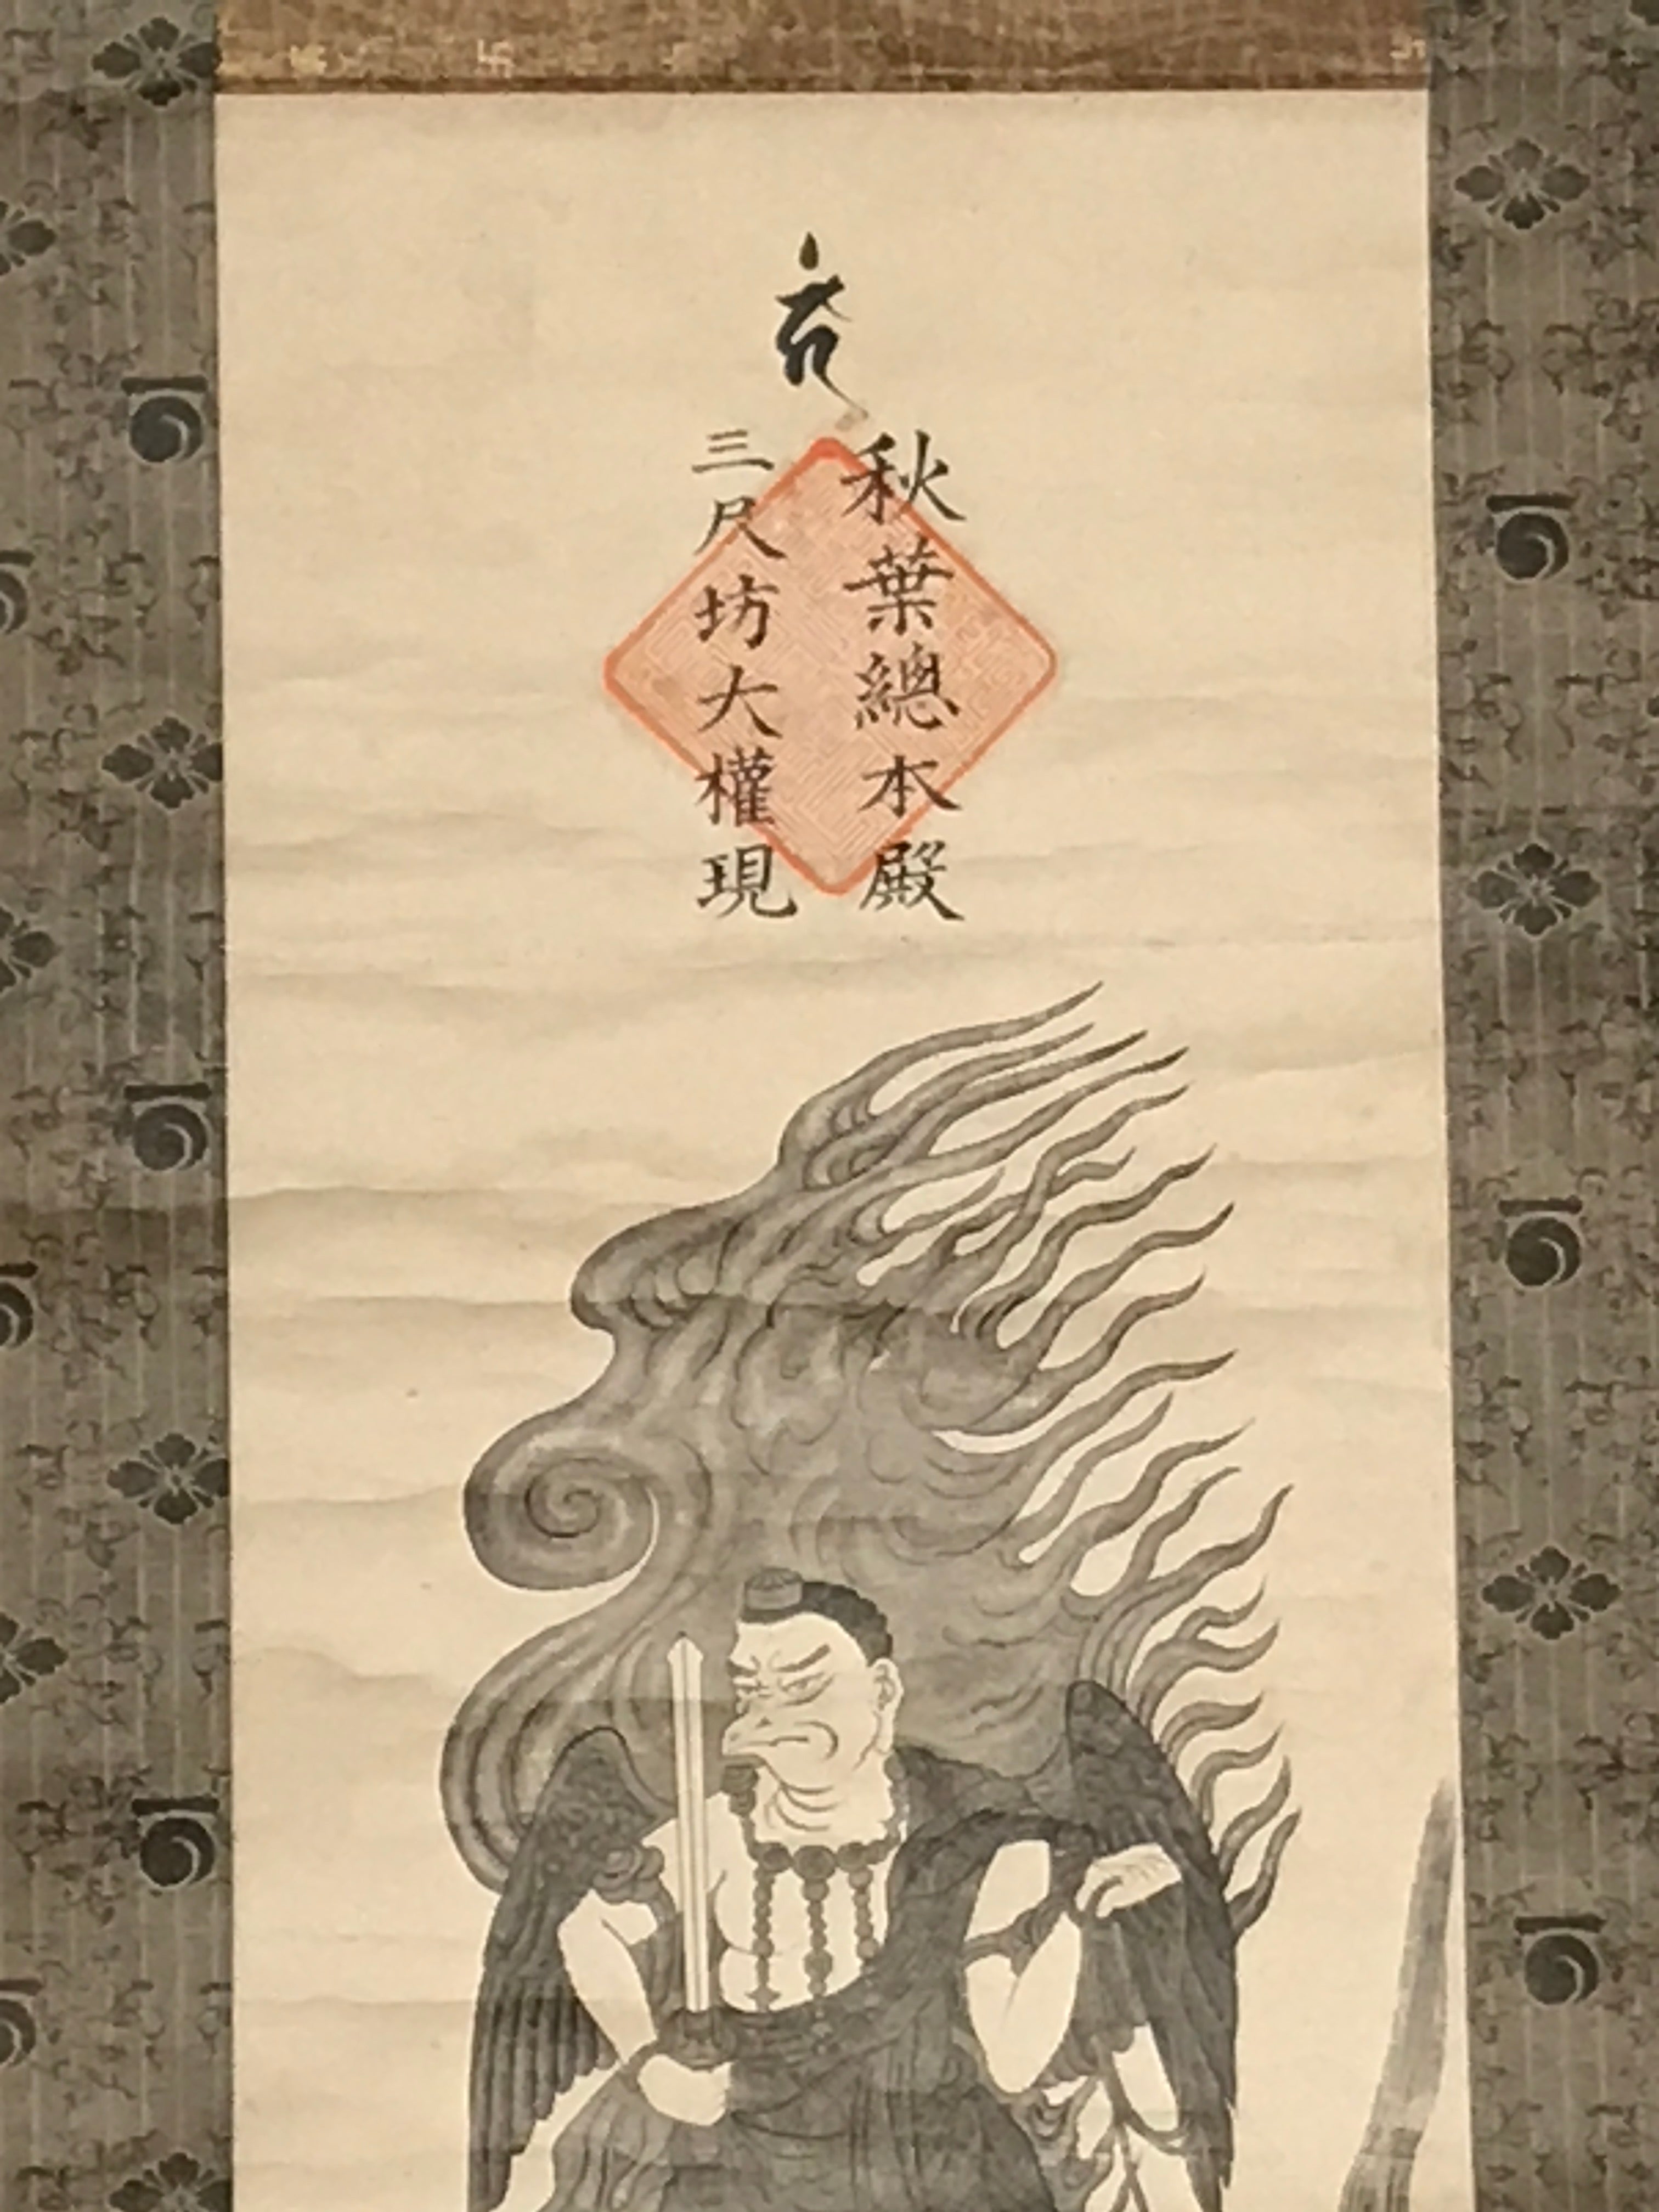 秋葉總本殿
三尺坊大權現